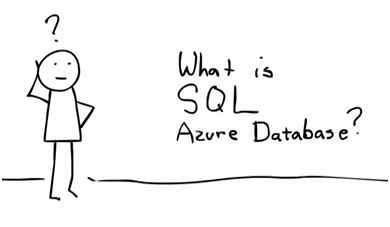 ?
What is
SQL
Azure Database?